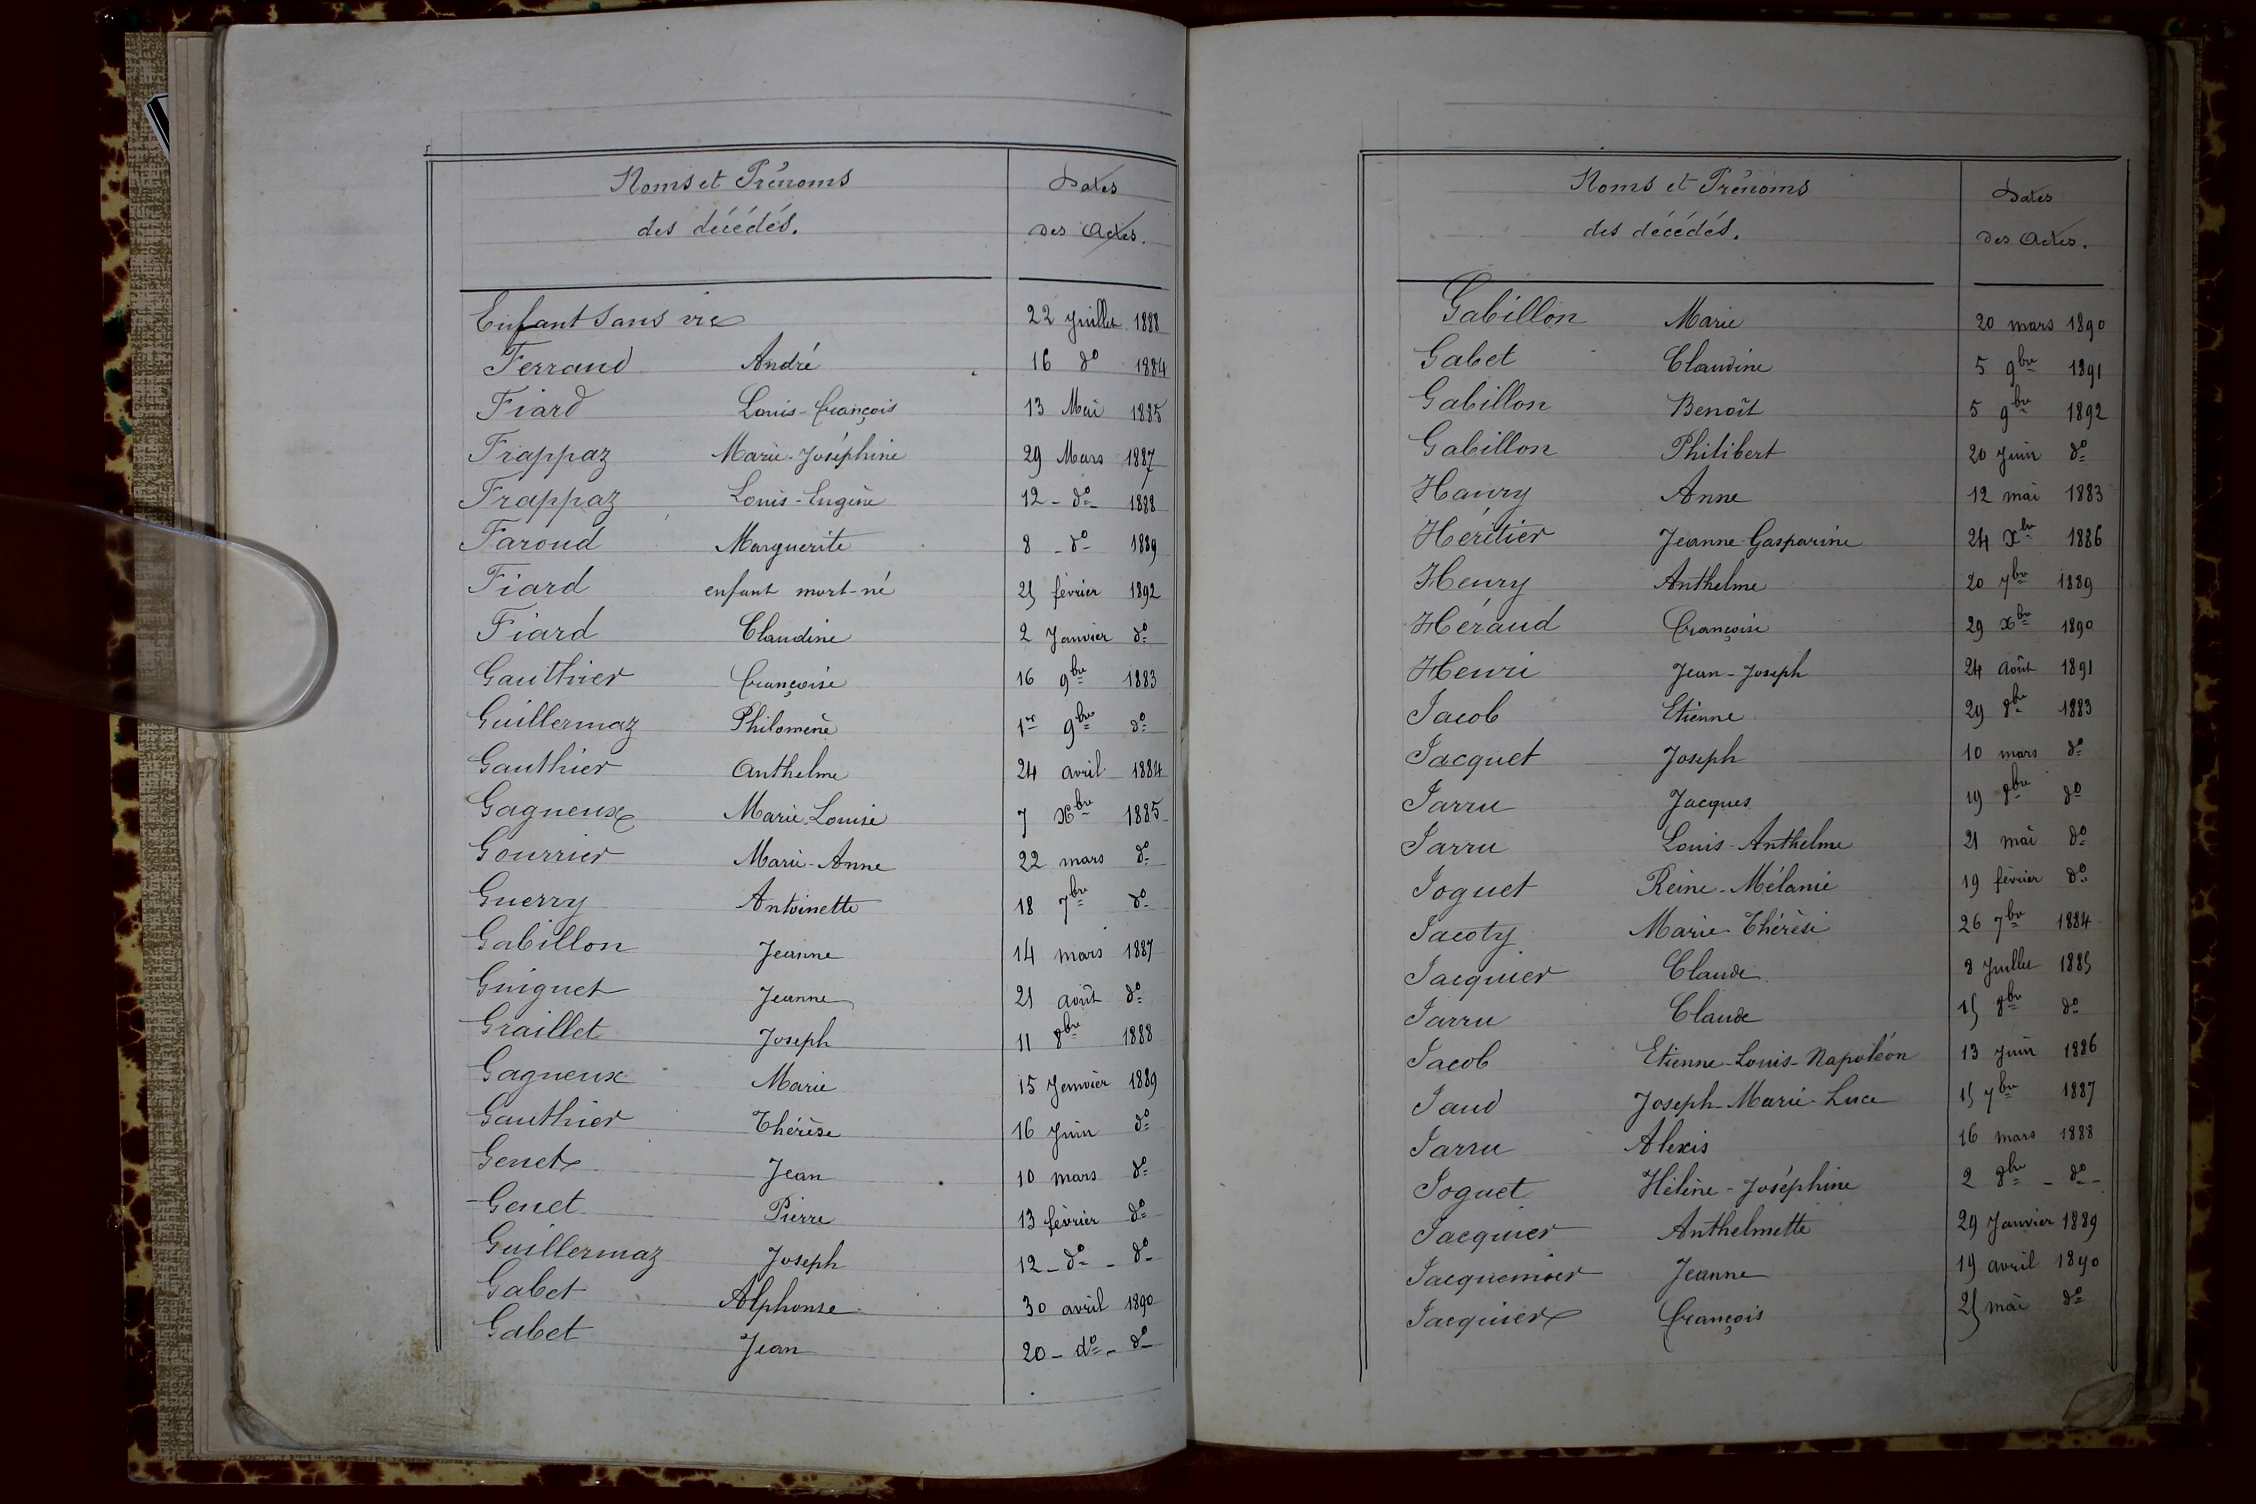 Noms et Prénoms Dates
des décédés. des Actes.
Enfant sans vie 22 Juillet 1888
Ferraud André 16 do 1884
Fiard Louis-François 13 Mai 1885
Frappaz Marie-Joséphine 29 Mars 1887
Frappaz Louis-Eugène 12 - do - 1888
Faroud Marguerite 8 - do - 1889
Fiard enfant mort-né 25 février 1892
Fiard Claudine 2 Janvier do
Gauthier Françoise 16 9bre 1883
Guillermaz Philomène 1er 9bre do
Gauthier Anthelme 24 avril 1884
Gagneux Marie-Louise 7 Xbre 1885
Gourrier Marie-Anne 22 mars do
Guerry Antoinette 18 7bre do
Gabillon Jeanne 14 mars 1887
Guiguet Jeanne 25 août do
Graillet Joseph 11 8bre 1888
Gagneux Marie 15 Janvier 1889
Gauthier Thérèse 16 Juin do
Genet Jean 10 mars do
Genet Pierre 13 février do
Guillermaz Joseph 12 - do - do
Gabet Alphonse 30 avril 1890
Gabet Jean 20 - do - do
Noms et Prénoms Dates
des décédés. des Actes.
Gabillon Marie 20 mars 1890
Gabet Claudine 5 9bre 1891
Gabillon Benoît 5 9bre 1892
Gabillon Philibert 20 Juin do
Haury Anne 12 mai 1883
Héritier Jeanne-Gasparine 24 Xbre 1886
Henry Anthelme 20 7bre 1889
Héraud Françoise 29 Xbre 1890
Henri Jean-Joseph 24 août 1891
Jacob Etienne 29 8bre 1883
Jacquet Joseph 10 mars do
Jarru Jacques 19 8bre do
Jarru Louis-Anthelme 21 mai do
Joguet Reine-Mélanie 19 février do
Jacoty Marie-Thérèse 26 7bre 1884
Jacquier Claude 8 Juillet 1885
Jarru Claude 15 8bre do
Jacob Etienne-Louis-Napoléon 13 Juin 1886
Jaud Joseph-Marie-Luce 15 7bre 1887
Jarru Alexis 16 mars 1888
Joguet Hélène-Joséphine 2 8bre - do -
Jacquier Anthelmette 29 Janvier 1889
Jacquemier Jeanne 19 avril 1890
Jacquier François 25 mai do